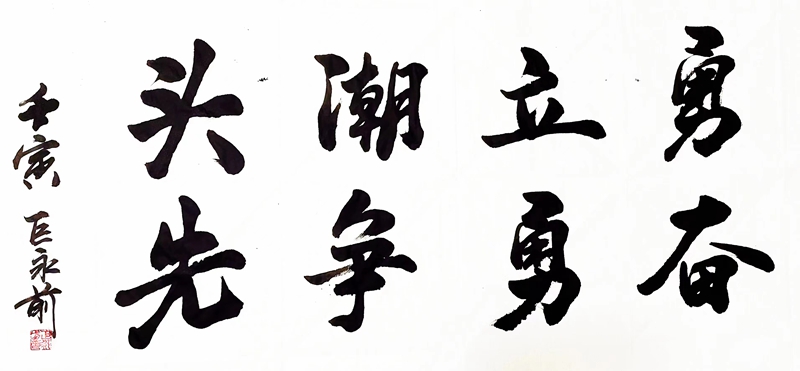 勇立潮头
奋勇争先
壬寅 巨永前